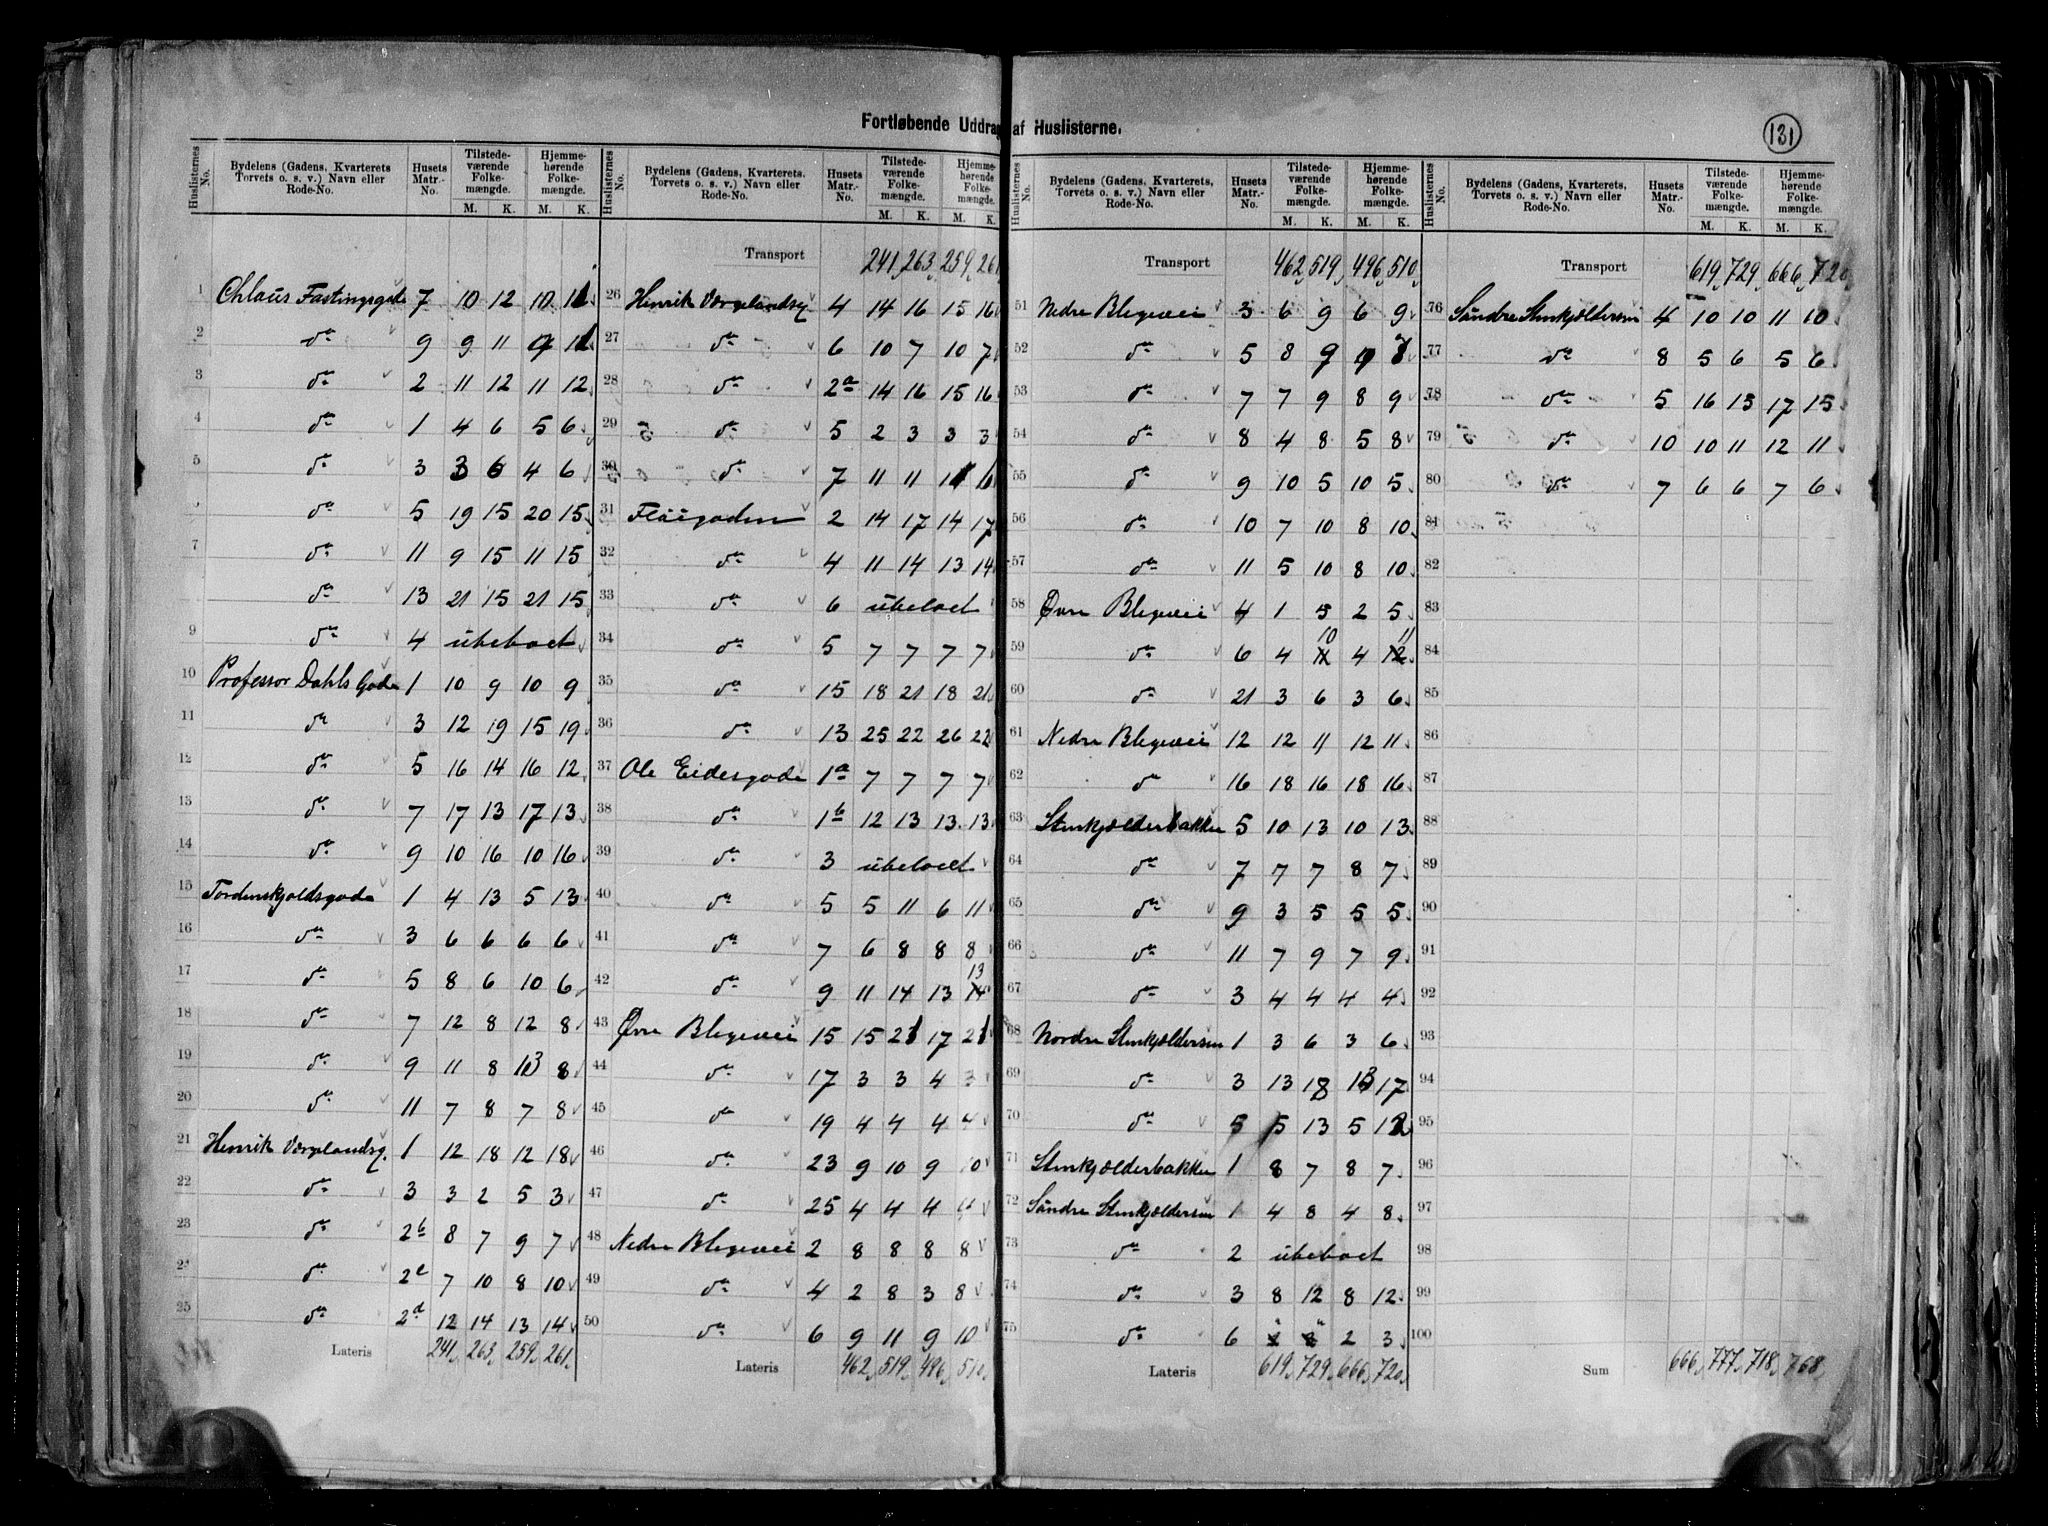 Fortløbende Uddrag af Huslisterne.
131
Huslisternes No. | Bydelens (Gadens, Kvarterets Torvets o. s. v.) Navn eller Rode-No. | Husets Matr.-No. | Tilstedeværende Folkemængde. M. K. | Hjemmehørende Folkemængde. M. K.
1 Chlaus Fastingsgade 7 10 12 10 11
2 do 9 9 11 9 11
3 do 2 11 12 11 12
4 do 1 4 6 5 6
5 do 3 3 6 4 6
do 5 19 15 20 15
7 do 11 9 15 11 15
do 13 21 15 21 15
9 do 4 ubeboet
10 Professor Dahls Gade 1 10 9 10 9
11 do 3 12 19 15 19
12 do 5 16 14 16 12
13 do 7 17 13 17 13
14 do 9 10 16 10 16
15 Tordenskjoldsgade 1 4 13 5 13
16 do 3 6 6 6 6
17 do 5 8 6 10 6
18 do 7 12 8 12 8
19 do 9 11 8 13 8
20 do 11 7 8 7 8
21 Henrik Vergelandsg. 1 12 18 12 18
22 do 3 3 2 5 3
23 do 2b 8 7 9 7
24 do 2c 7 10 8 10
25 do 2d 12 14 13 14
Lateris 241 263 259 261
Huslisternes No. | Bydelens (Gadens, Kvarterets, Torvets o. s. v.) Navn eller Rode-No. | Husets Matr.-No. | Tilstedeværende Folkemængde. M. K. | Hjemmehørende Folkemængde. M. K.
Transport 241 263 259 261
26 Henrik Vergelandsg. 4 14 16 15 16
27 do 6 10 7 10 7
28 do 2a 14 16 15 16
29 do 5 2 3 3 3
30 do 7 11 11 11
31 Fløigaden 2 14 17 14 17
32 do 4 11 14 13 14
33 do 6 ubeboet
34 do 5 7 7 7 7
35 do 15 18 21 18 21
36 do 13 25 22 26 22
37 Ole Eidesgade 1a 7 7 7 7
38 do 1b 12 13 13 13
39 do 3 ubeboet
40 do 5 5 11 6 11
41 do 7 6 8 8 8
42 do 9 11 14 13 13
43 Øvre Blegevei 15 15 21 17 21
44 do 17 3 3 4 3
45 do 19 4 4 4 4
46 do 23 9 10 9 10
47 do 25 4 4 4 4
48 Nedre Blegevei 2 8 8 8 8
49 do 4 2 8 3 8
50 do 6 9 11 9 10
Lateris 462 519 496 510
Huslisternes No. | Bydelens (Gadens, Kvarterets, Torvets o. s. v.) Navn eller Rode-No. | Husets Matr.-No. | Tilstedeværende Folkemængde. M. K. | Hjemmehørende Folkemængde. M. K.
Transport 462 519 496 510
51 Nedre Blegevei 3 6 9 6 9
52 do 5 8 9 9
53 do 7 7 9 8 9
54 do 8 4 8 5 8
55 do 9 10 5 10 5
56 do 10 7 10 8 10
57 do 11 5 10 8 10
58 Øvre Blegevei 4 1 5 2 5
59 do 6 4 10 4 11
60 do 21 3 6 3 6
61 Nedre Blegevei 12 12 11 12 11
62 do 16 18 16 18 16
63 Stenkjælderbakken 5 10 13 10 13
64 do 7 7 7 8 7
65 do 9 3 5 5 5
66 do 11 7 9 7 9
67 do 3 4 4 4 4
68 Nordre Stenkjældersm 1 3 6 3 6
69 do 3 13 18 13 17
70 do 5 5 13 5 12
71 Stenkjælderbakken 1 8 7 8 7
72 Søndre Stenkjældersm 1 4 8 4 8
73 do 2 ubeboet
74 do 3 8 12 8 12
75 do 6 2 3
Lateris 619 729 666 720
Huslisternes No. | Bydelens (Gadens, Kvarterets, Torvets o. s. v.) Navn eller Rode-No. | Husets Matr.-No. | Tilstedeværende Folkemængde. M. K. | Hjemmehørende Folkemængde. M. K.
Transport 619 729 666 720
76 Søndre Stenkjældersm 4 10 10 11 10
77 do 8 5 6 5 6
78 do 5 16 15 17 15
79 do 10 10 11 12 11
80 do 7 6 6 7 6
81
82
83
84
85
86
87
88
89
90
91
92
93
94
95
96
97
98
99
100
Sum 666 777 718 768